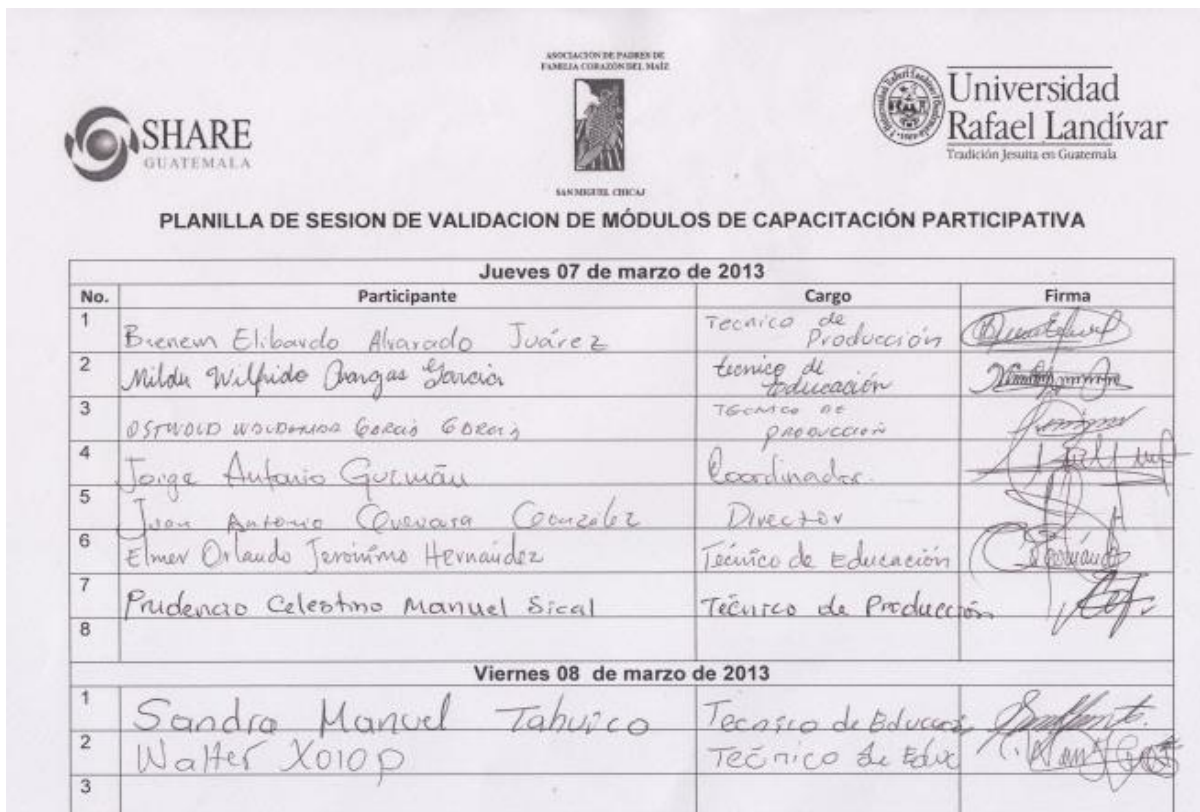 ASOCIACIÓN DE PADRES DE
FAMILIA CORAZÓN DEL MAÍZ
SHARE
GUATEMALA
SAN MIGUEL CHICAJ
Universidad
Rafael Landívar
Tradición Jesuita en Guatemala
PLANILLA DE SESION DE VALIDACION DE MÓDULOS DE CAPACITACIÓN PARTICIPATIVA
Jueves 07 de marzo de 2013
No. Participante Cargo Firma
1 Elibardo Alvarado Juárez Tecnico de Producción
2 Wilfrido Garcia tecnico de Educación
3 Tecnico de Producción
4 Jorge Antonio Guzmán Coordinador.
5 Juan Antonio Director
6 Elmer Orlando Jerónimo Hernández Técnico de Educación
7 Prudencio Celestino Manuel Sical Técnico de Producción
8
Viernes 08 de marzo de 2013
1 Sandra Manuel Tahuico Tecnico de
2 Walter Xolop Técnico de Educ
3